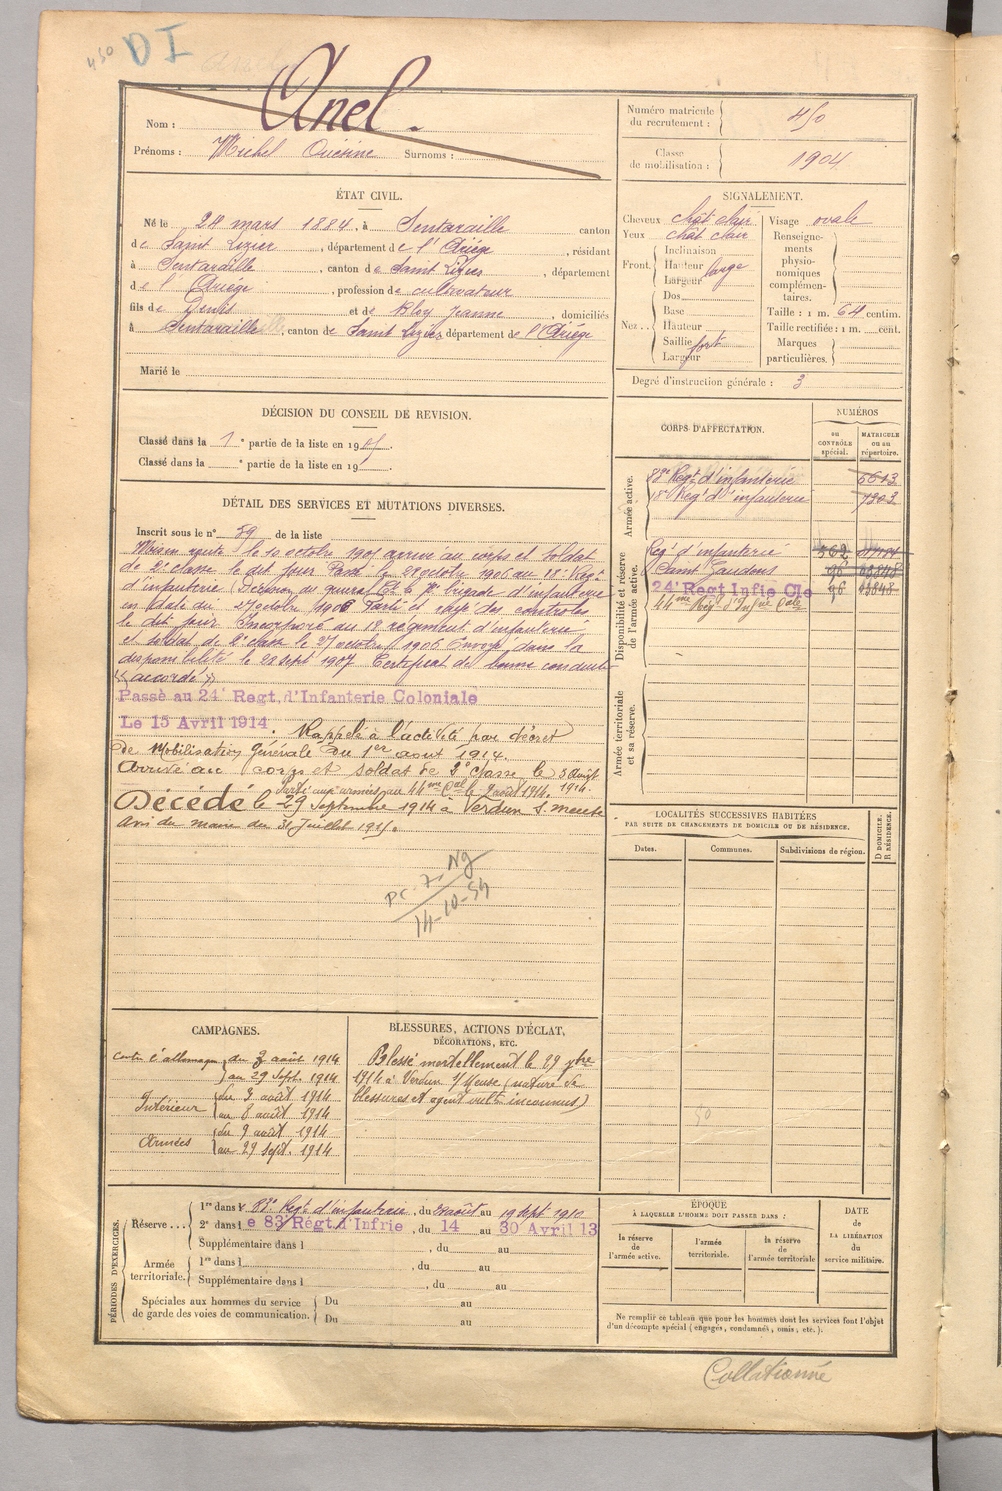 450 DI
Nom : Anel.
Prénoms : Michel Onésine Surnoms :
Numéro matricule
du recrutement : 450
Classe
de mobilisation : 1904
ÉTAT CIVIL.
Né le 24 mars 1884, à Sentaraille canton
de Saint Lizier, département de l'Ariége, résidant
à Sentaraille, canton de Saint Lizier, département
de l'Ariége, profession de cultivateur
fils de Denis et de Bloy Jeanne, domiciliés
à Sentaraille, canton de Saint Lizier, département de l'Ariége
Marié le
SIGNALEMENT.
Cheveux chât clair
Yeux chât clair
Front. Inclinaison
Hauteur
Largeur large
Nez... Dos
Base
Hauteur
Saillie fort
Largeur
Visage ovale
Renseigne-
ments
physio-
nomiques
complémen-
taires.
Taille : 1 m. 64 centim.
Taille rectifiée : 1 m. cent.
Marques
particulières.
Degré d'instruction générale : 3
DÉCISION DU CONSEIL DE REVISION.
Classé dans la 1e partie de la liste en 1905.
Classé dans la e partie de la liste en 19
DÉTAIL DES SERVICES ET MUTATIONS DIVERSES.
Inscrit sous le n° 59 de la liste
Mis en route le 10 octobre 1905 arrivé au corps et soldat
de 2e classe le dit jour Passé le 28 octobre 1906 au 18e Régt
d'infanterie (Décision du général Ct la brigade d'infanterie
en date du 27 octobre 1906 Parti et rayé des controles
le dit jour Incorporé au 18 régiment d'infanterie
et soldat de 2e classe le 27 octobre 1906 Envoyé dans la
disponibilité le 28 sept 1907 Certificat de bonne conduite
"accordé"
Passé au 24e Regt. d'Infanterie Coloniale
Le 15 Avril 1914. Rappelé à l'activité par décret
de Mobilisation Générale du 1er aout 1914.
Arrivé au corps et soldat de 2e classe le 3 Août
1914. Parti aux armées au 44me Cal le 9 août 1914.
Décédé le 29 Septembre 1914 à Verdun s. meuse
Avis du maire du 31 Juillet 1915.
14-10-54
CORPS D'AFFECTATION.
NUMÉROS
au
CONTRÔLE
spécial.
MATRICULE
ou au
répertoire.
Armée active.
83e Régt d'infanterie 5613
18e Régt d'infanterie 7303
Disponibilité et réserve
de l'armée active.
Régt d'infanterie 562
Saint Gaudens 96 03848
24e Regt Infie Cle 96 03848
44me Régt d'Infie Cale
Armée territoriale
et sa réserve.
LOCALITÉS SUCCESSIVES HABITÉES
PAR SUITE DE CHANGEMENTS DE DOMICILE OU DE RÉSIDENCE.
Dates. Communes. Subdivisions de région.
D DOMICILE.
R RÉSIDENCE.
50
CAMPAGNES.
Contre l'allemagne du 3 août 1914
au 29 Sept. 1914
Intérieur du 3 août 1914
au 8 août 1914
Armées du 9 août 1914
au 29 Sept. 1914
BLESSURES, ACTIONS D'ÉCLAT,
DÉCORATIONS, ETC.
Blessé mortellement le 29 7bre
1914 à Verdun s/Meuse (nature de
blessures et agent vult. inconnus)
PÉRIODES D'EXERCICES.
Réserve... 1re dans le 83e Régt d'infanterie, du 28 août au 19 sept 1910
2e dans le 83 Régt d'Infrie, du 14 au 30 Avril 13
Supplémentaire dans l , du au
Armée
territoriale. 1re dans l , du au
Supplémentaire dans l , du au
Spéciales aux hommes du service
de garde des voies de communication. Du au
Du au
ÉPOQUE
À LAQUELLE L'HOMME DOIT PASSER DANS :
la réserve
de
l'armée active.
l'armée
territoriale.
la réserve
de
l'armée territoriale
DATE
de
LA LIBÉRATION
du
service militaire.
Ne remplir ce tableau que pour les hommes dont les services font l'objet
d'un décompte spécial (engagés, condamnés, omis, etc.).
Collationné